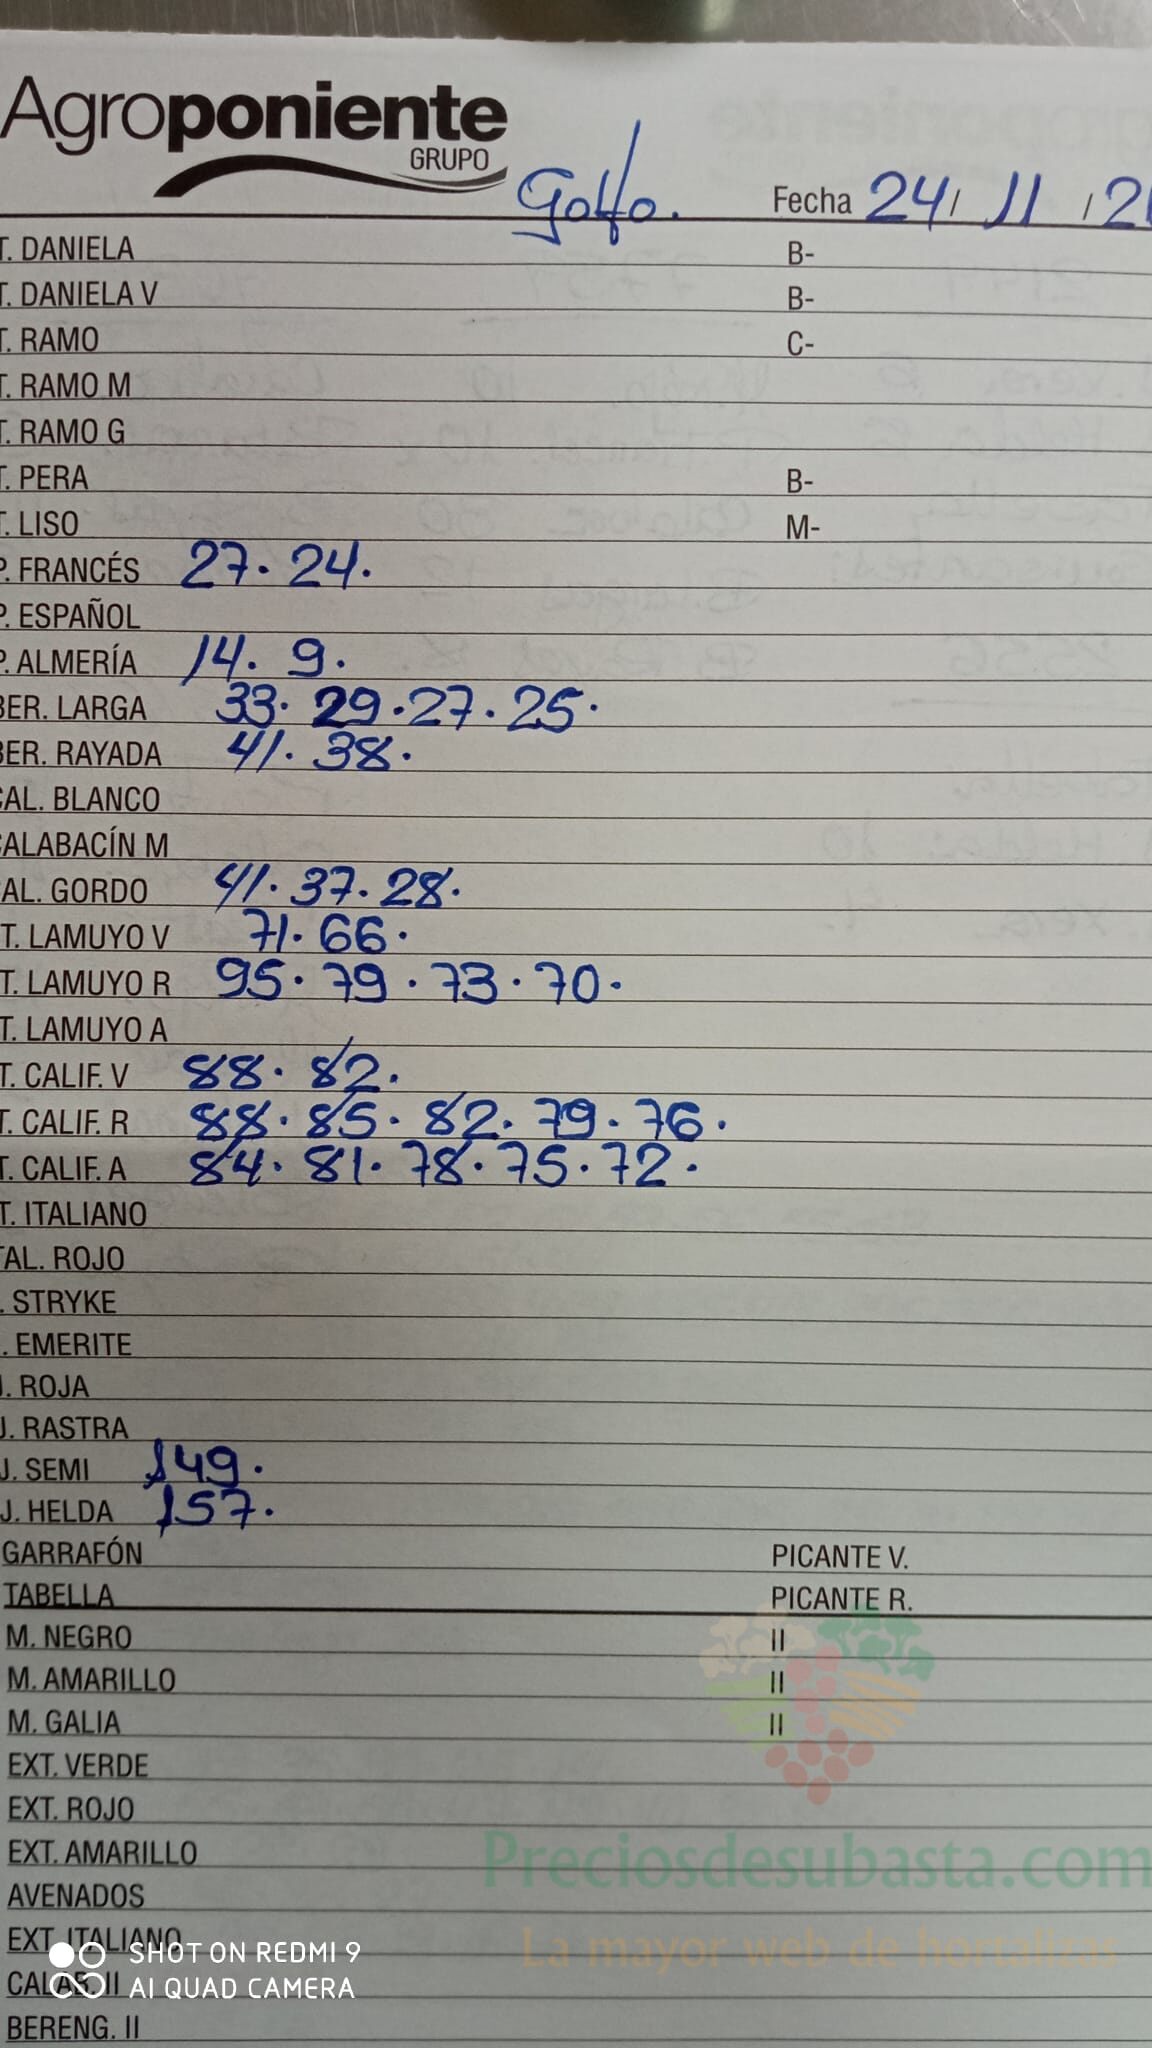 Agroponiente
GRUPO
Golfo. Fecha 24/ 11 /21
T. DANIELA B-
T. DANIELA V B-
T. RAMO C-
T. RAMO M
T. RAMO G
T. PERA B-
T. LISO M-
P. FRANCÉS 27. 24.
P. ESPAÑOL
P. ALMERÍA 14. 9.
BER. LARGA 33. 29. 27. 25.
BER. RAYADA 41. 38.
CAL. BLANCO
CALABACÍN M
CAL. GORDO 41. 37. 28.
T. LAMUYO V 71. 66.
T. LAMUYO R 95. 79. 73. 70.
T. LAMUYO A
T. CALIF. V 88. 82.
T. CALIF. R 88. 85. 82. 79. 76.
T. CALIF. A 84. 81. 78. 75. 72.
T. ITALIANO
TAL. ROJO
. STRYKE
. EMERITE
J. ROJA
J. RASTRA
J. SEMI 149.
J. HELDA 157.
GARRAFÓN PICANTE V.
TABELLA PICANTE R.
M. NEGRO II
M. AMARILLO II
M. GALIA II
EXT. VERDE
EXT. ROJO
EXT. AMARILLO
Preciosdesubasta.com
AVENADOS
EXT. ITALIANO
La mayor web de hortalizas
SHOT ON REDMI 9
CALAB. II
AI QUAD CAMERA
BERENG. II